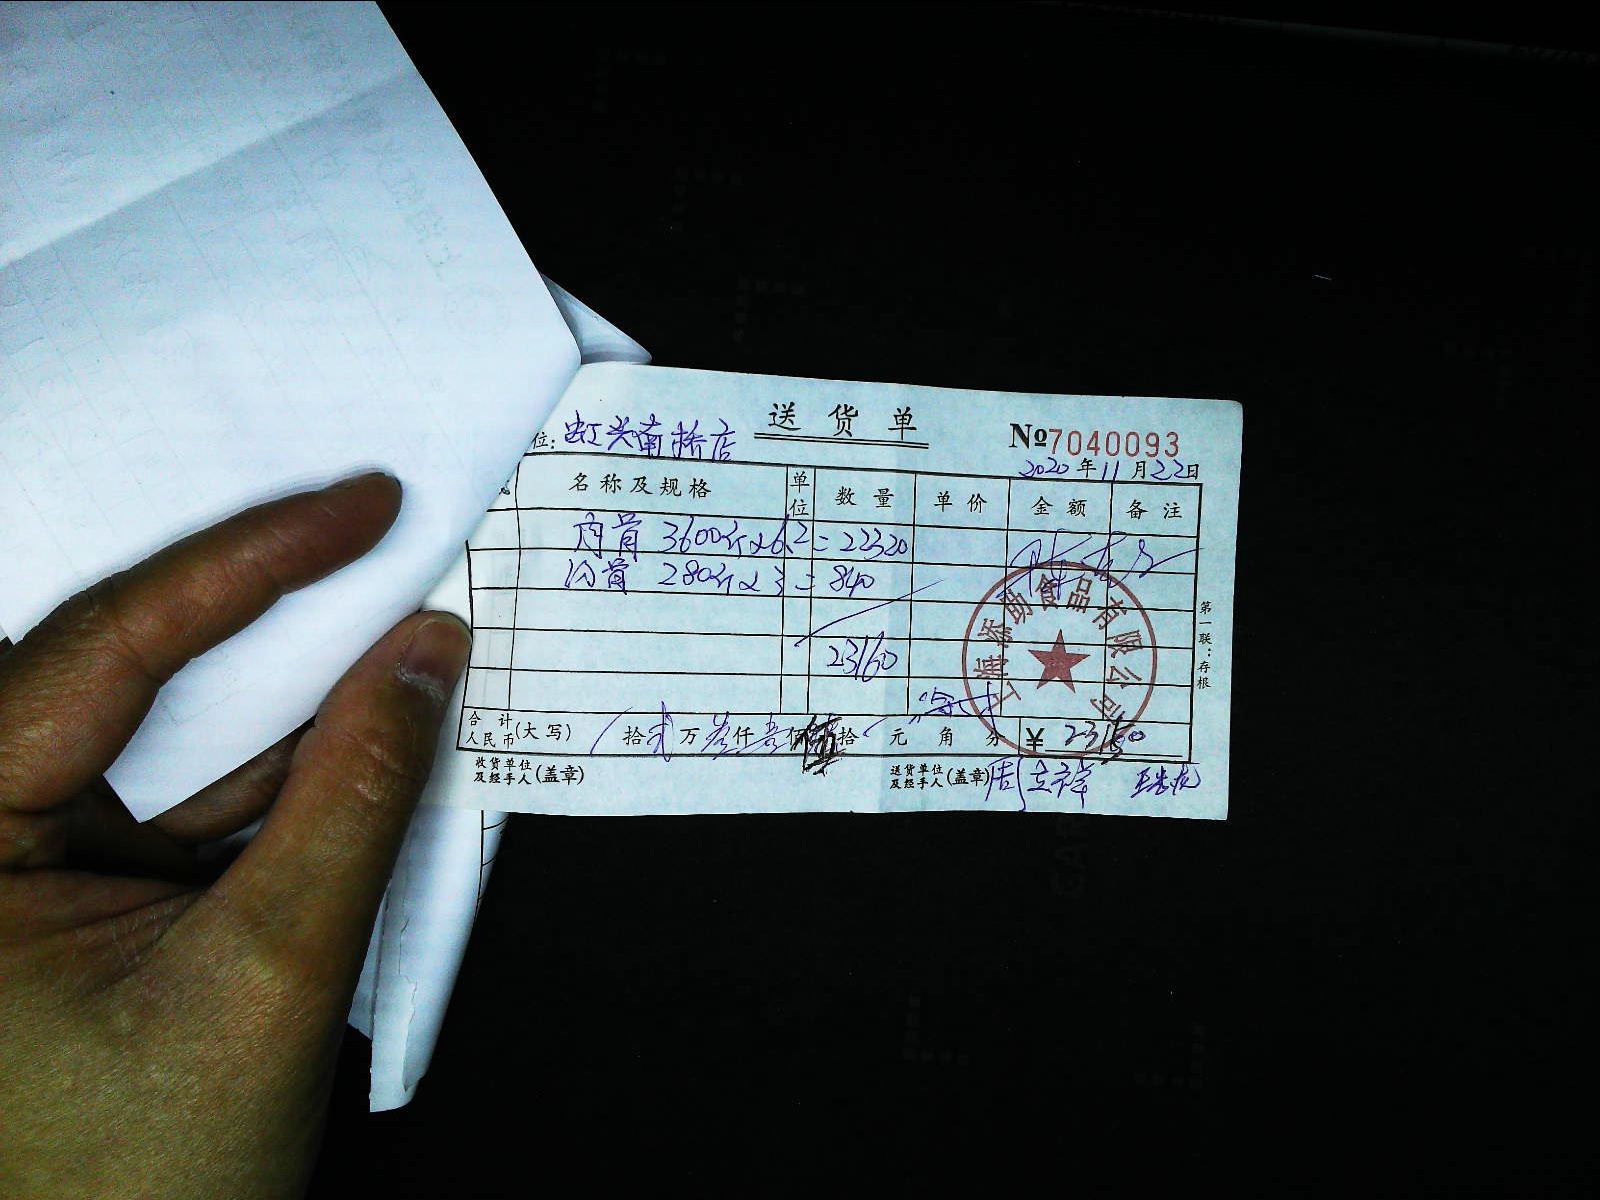 送货单
№7040093
位: 虹兴南桥店
2020年11月22日
名称及规格 单位 数量 单价 金额 备注
肉骨 3600斤×6.2=22320
汤骨 280斤×3=840
23160
上海添助食品有限公司
第一联:存根
合计人民币(大写) 拾贰万叁仟壹佰 拾 元 角 分 ¥23160
收货单位及经手人(盖章)
送货单位及经手人(盖章) 周立祥